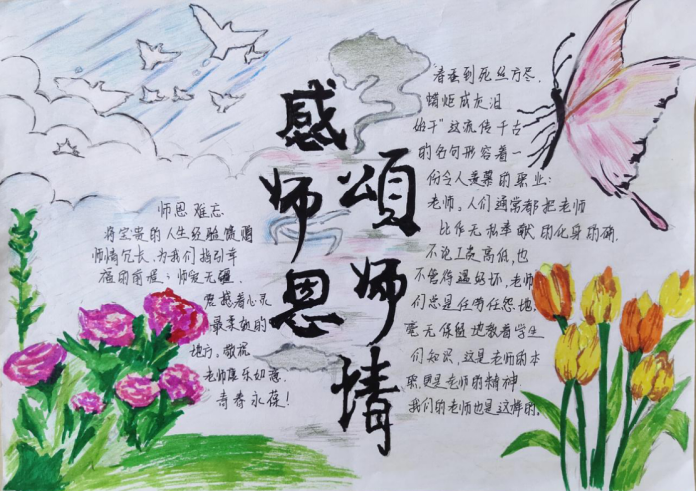 感师恩
頌师情
师恩难忘
将宝贵的人生经验馈赠
师情冗长,为我们指引幸
福的前程:师爱无疆,
震撼着心灵
最柔软的
地方,敬祝
老师康乐如意,
青春永葆!
春蚕到死丝方尽,
蜡炬成灰泪
始干"这流传千古
的名句形容着一
份令人羡慕的职业:
老师。人们通常都把老师
比作无私奉献的化身的确,
不论工资高低,也
不管待遇好坏,老师
们总是任劳任怨地,
毫无保留地教着学生
们知识,这是老师的本
职,更是老师的精神.
我们的老师也是这样的。